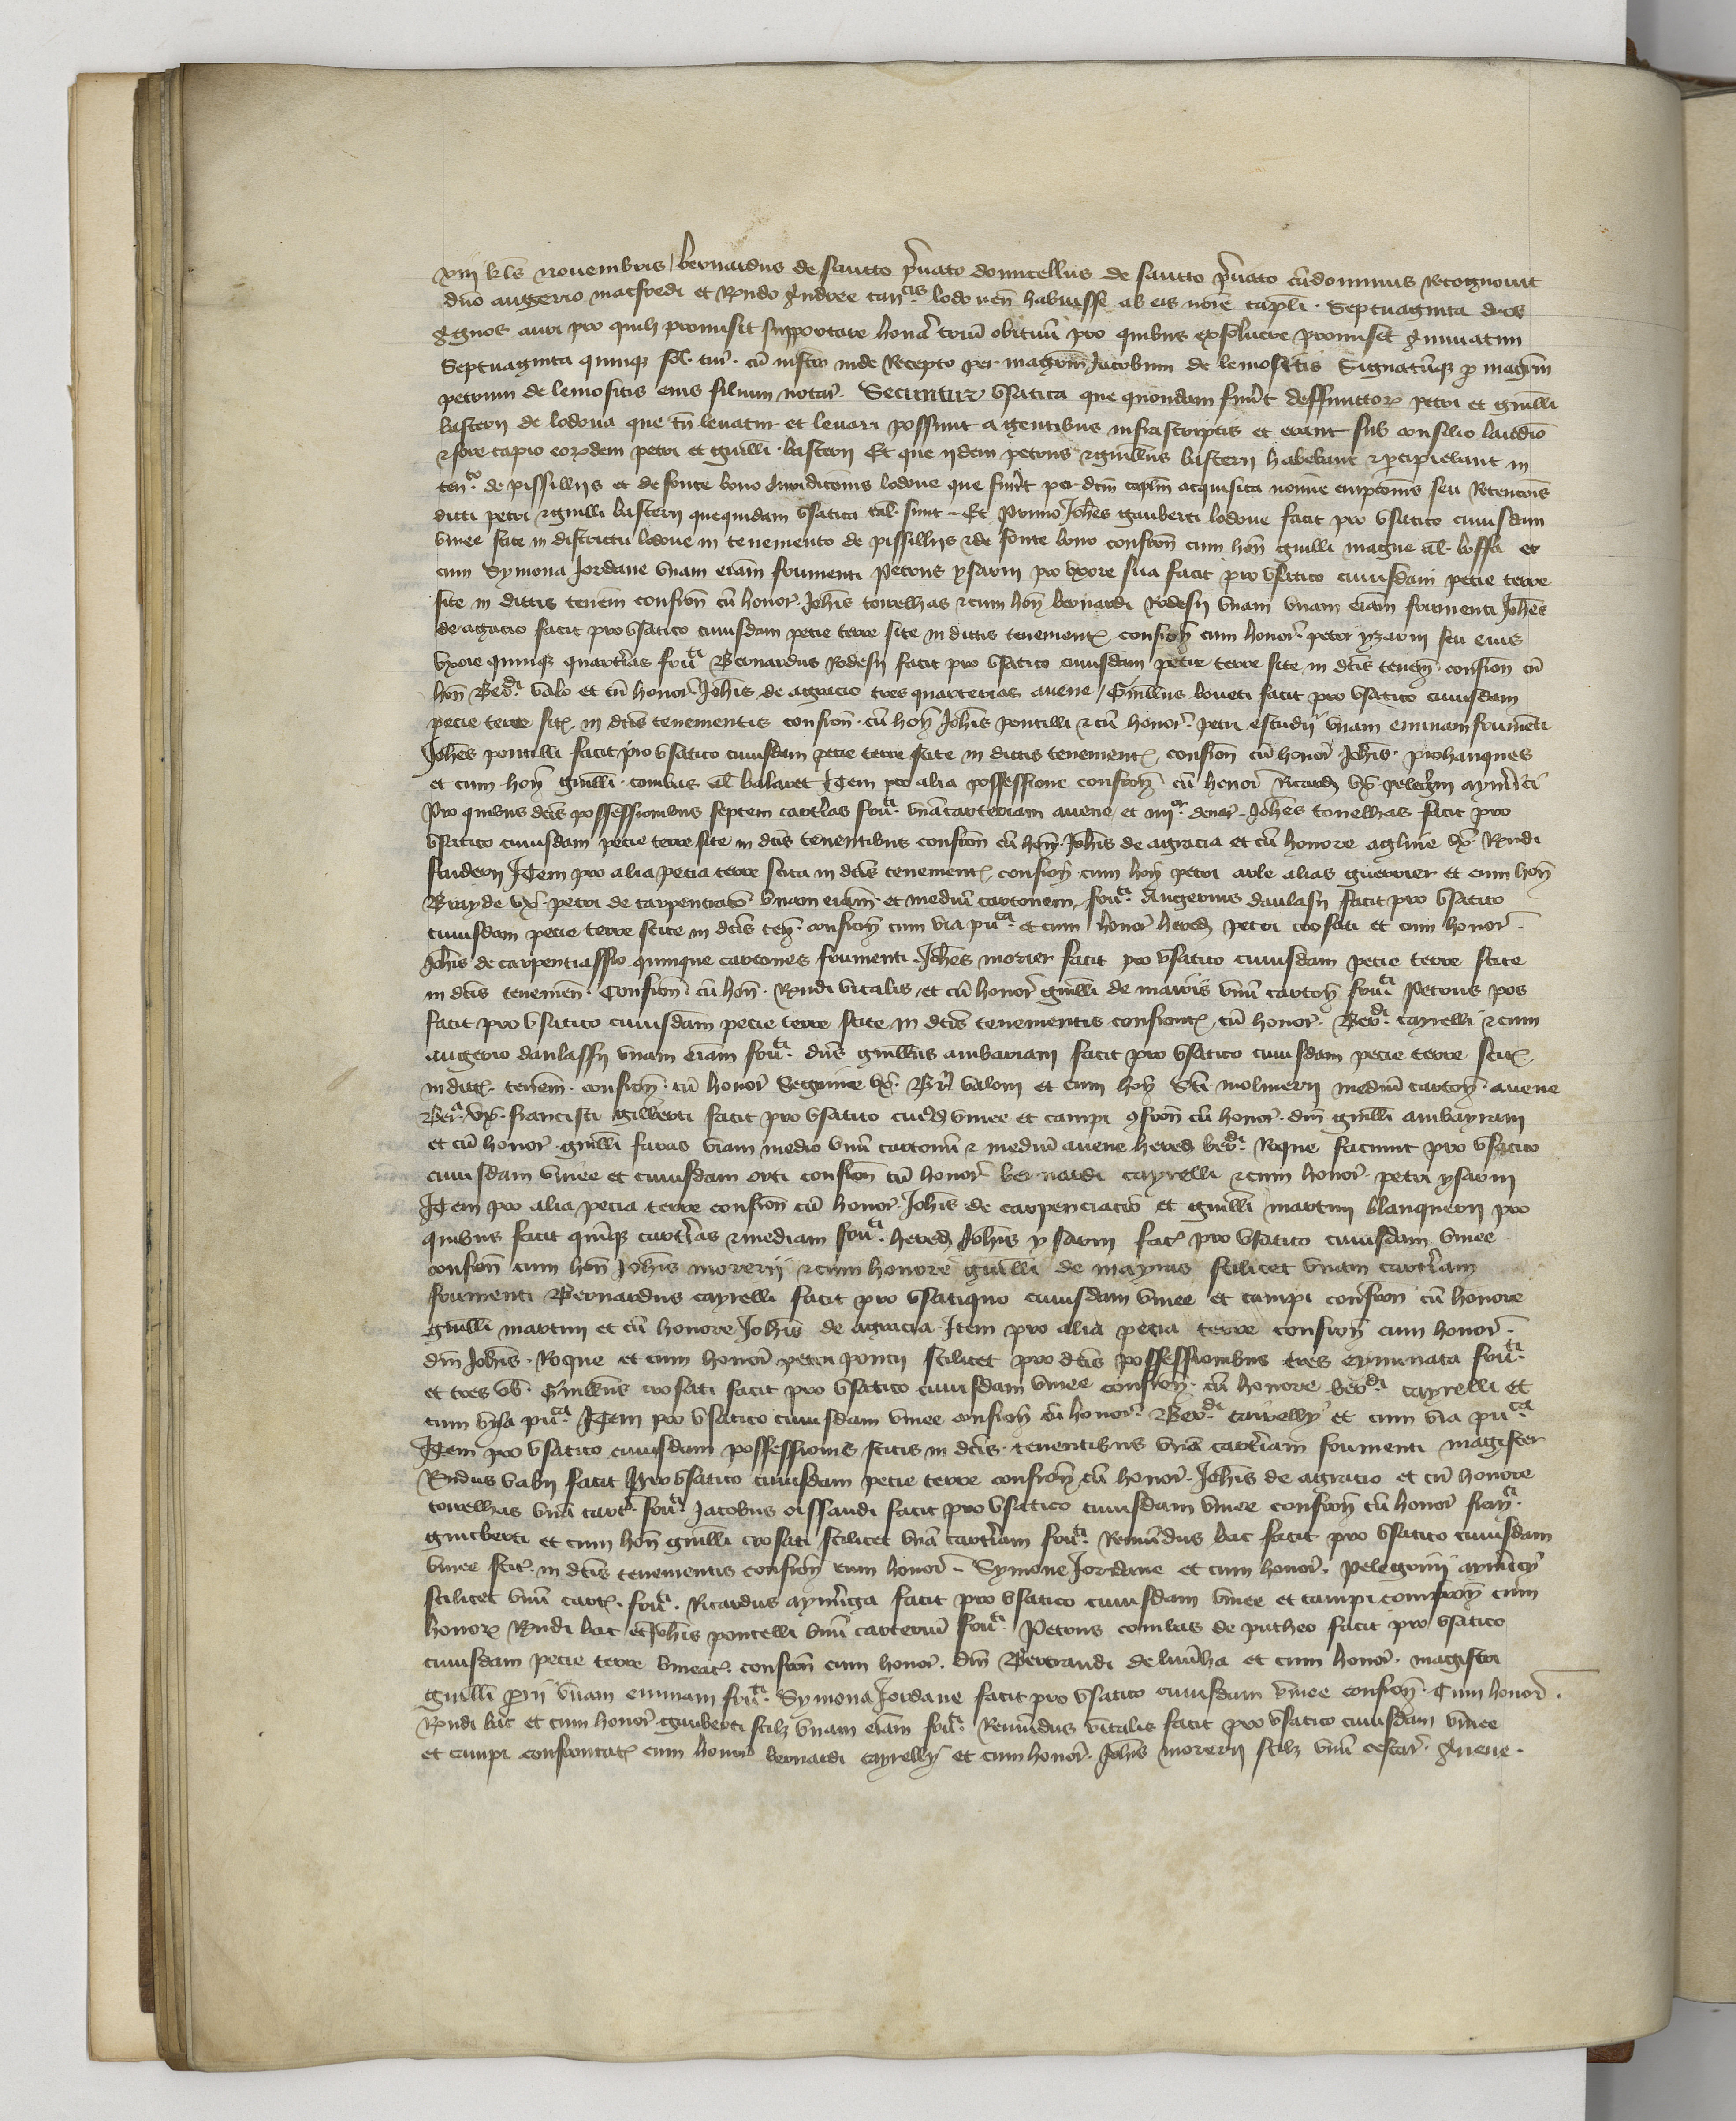 xiij kls nouembris / bernardus de sancto priuato domicellus de sancto priuato condominus recognouit
dno augerio macfredi et Rndo Andree cancis lodouen habuisse ab eis noie capli . Septuaginta duos
Agnos auri pro quibz promisit supportare honera triu obituu pro quibus exsoluere promisit Annuatim
Septuaginta quinqz sol. tur. cu instro inde Recepto per magrm Jacobum de lemositis Signatuqz p magrm
petrum de lemositis eius filium notar. Secuntur vsatica que quondam fuert deffunctor petri et guilli
basterij de lodoua que tn leuatur et leuari possunt a gentibus infrascriptis et erant sub consilio laudio
& fore capio eordem petri et guilli . basterij Et que ijdem petrus & guillus basterij habebant & pcipiebant in
tento de pissillijs et de fonte bono Juridicionis lodoue que fuert per dcm caplm acquisita nomine empcionis seu Retencois
dicti petri & guilli basterij quequidam vsatica tal sunt - Et Primo Johes gauberti lodoue facit pro vsatico cuiusdam
vinee scite in districtu lodoue in tenemento de pissillijs & de fonte bono confron cum hon guilli magne al. boffa et
cum Symona Jordane vnam eiam frumenti Petrus ysarni pro vxore sua facit pro vsatico cuiusdam pecie terre
site in dictis tenem confron cu honor. Johis torrelhas & cum hon bernardi Rodesij vnam vnam eiam frumenti Johes
de agacio facit pro vsatico cuiusdam pecie terre site in dictis tenement confron cum honor. petri yzarni seu eius
vxore quinqz quarterias frua Bernardus Rodesij facit pro vsatico cuiusdam pecie terre site in dcis tenem . confron cu
hon Berdi valo et cu honor. Johis de agracio tres quarterias auene / Guillus boueti facit pro vsatico cuiusdam
pecie terre sit in dcis tenementis confron . cu hon Johis pontilli & cu honor. petri estudij vnam eminam frumenti
Johes pontilli facit pro vsatico cuiusdam pecie terre scite in dictis tenement confron cu honor Johis . prohanques
et cum hon guilli . combas al balaret Item pro alia possessione confron cu honor Ricardi vx pelegrin aymrici
Pro quibus dcis possessionibus septem cartias frua. vna carteriam auene et iiijor denar. Johes torrelhas facit pro
vsatico cuiusdam pecie terre site in dcis tenentibus confron cu hon Johis de agracia et cu honore agline vx Rndi
fauderij Item pro alia pecia terre scita in dcis tenement confron cum hon petri arle alias guerrier et cum hon
Brayde vx. petri de carpentrato vnam eiam et mediu cartonem frua. Augerius daulasij facit pro vsatico
cuiusdam pecie terre scite in dcis ten. confron cum via puca. et cum honor hered petri crosati et cum honor.
Johis de carpentrassio quinque cartones frumenti . Johes morier facit pro vsatico cuiusdam pecie terre scite
in dcis tenemen Confron cu hon . Rndi vitalis et cu honor guilli de maiis vnu carton frua Petrus pos
facit pro vsatico cuiusdam pecie terre scite in dcis tenementis confront cu honor. Berdi. cayrelli & cum
augerio daulassij vnam eiam frua. dns guillus ambariani facit pro vsatico cuiusdam pecie terre scit
in dict . tenem . confron . cu honor Seguine vx Bri valoni et cum hon Sti molinerij mediu carton . auene
Bera. vx. francisci gilberti facit pro vsatico cuisd vinee et campi 9fron cu honor . dni guilli ambayrani
et cu honor . guilli faras viam medio vnu cartonu & mediu auene hered berdi Roque faciunt pro vsatico
cuiusdam vinee et cuiusdam orti confron cu honor bernardi cayrelli & cum honor. petri ysarni
Item pro alia pecia terre confron cu honor. Johis de carpenciacio et guilli martini blanquerij pro
quibus facit quinqz cartias & mediam frua . hered Johis ysarni fac pro vsatico cuiusdam vinee
confron cum hon Johis morerij & cum honore guilli de maynis scilicet vnam cartiam
frumenti Bernardus cayrelli facit pro vsatiquo cuiusdam vinee et campi confron cu honore
guilli martini et cu honore Johis de agracia . Item pro alia pecia terre confron cum honor.
dni Johis . Roque et cum honor petri poncij scilicet pro dcis possessionibus tres eyminata frua.
et tres vb. Guillus crosati facit pro vsatico cuiusdam vinee confron . cu honore berdi. cayrelli et
cum vya puca Item pro vsatico cuiusdam vinee confron cu honor. Berdi cairelly et cum via puca.
Item pro vsatico cuiusdam possessionis scitis in dcis . tenentibus vna cartiam frumenti magister
Rndus vabij facit Pro vsatico cuiusdam pecie terre confron cu honor . Johis de agracio et cu honore
torrelhas vna cart frua Jacobus oissandi facit pro vsatico cuiusdam vinee confron cu honor franca.
guitberti et cum hon guilli crosati scilicet vna cartiam frua. Remudus bac facit pro vsatico cuiusdam
vinee scit. in dcis tenementis confron cum honor - Symone Jordane et cum honor . pelegrinij aymricij
scilicet vnu cart. frua. Ricardus aymriga facit pro vsatico cuiusdam vinee et campi comfron cum
honor Rndi bac et Johis pontelli vnu carteriu frua. Petrus combas de putheo facit pro vsatico
cuiusdam pecie terre vineat. confron cum honor. dni Bertrandi de luniha et cum honor. magistri
guilli prij vnam eminam frua. Symona Jordane facit pro vsatico cuiusdam vinee confron . Cum honor.
Rndi bac et cum honor guiberti scilz vnam eiam frua. Remudus vitalis facit pro vsatico cuiusdam vinee
et campi confrontat cum honor bernardi cayrelly et cum honor. Johis morerij scilz vnu cestar. Auene .